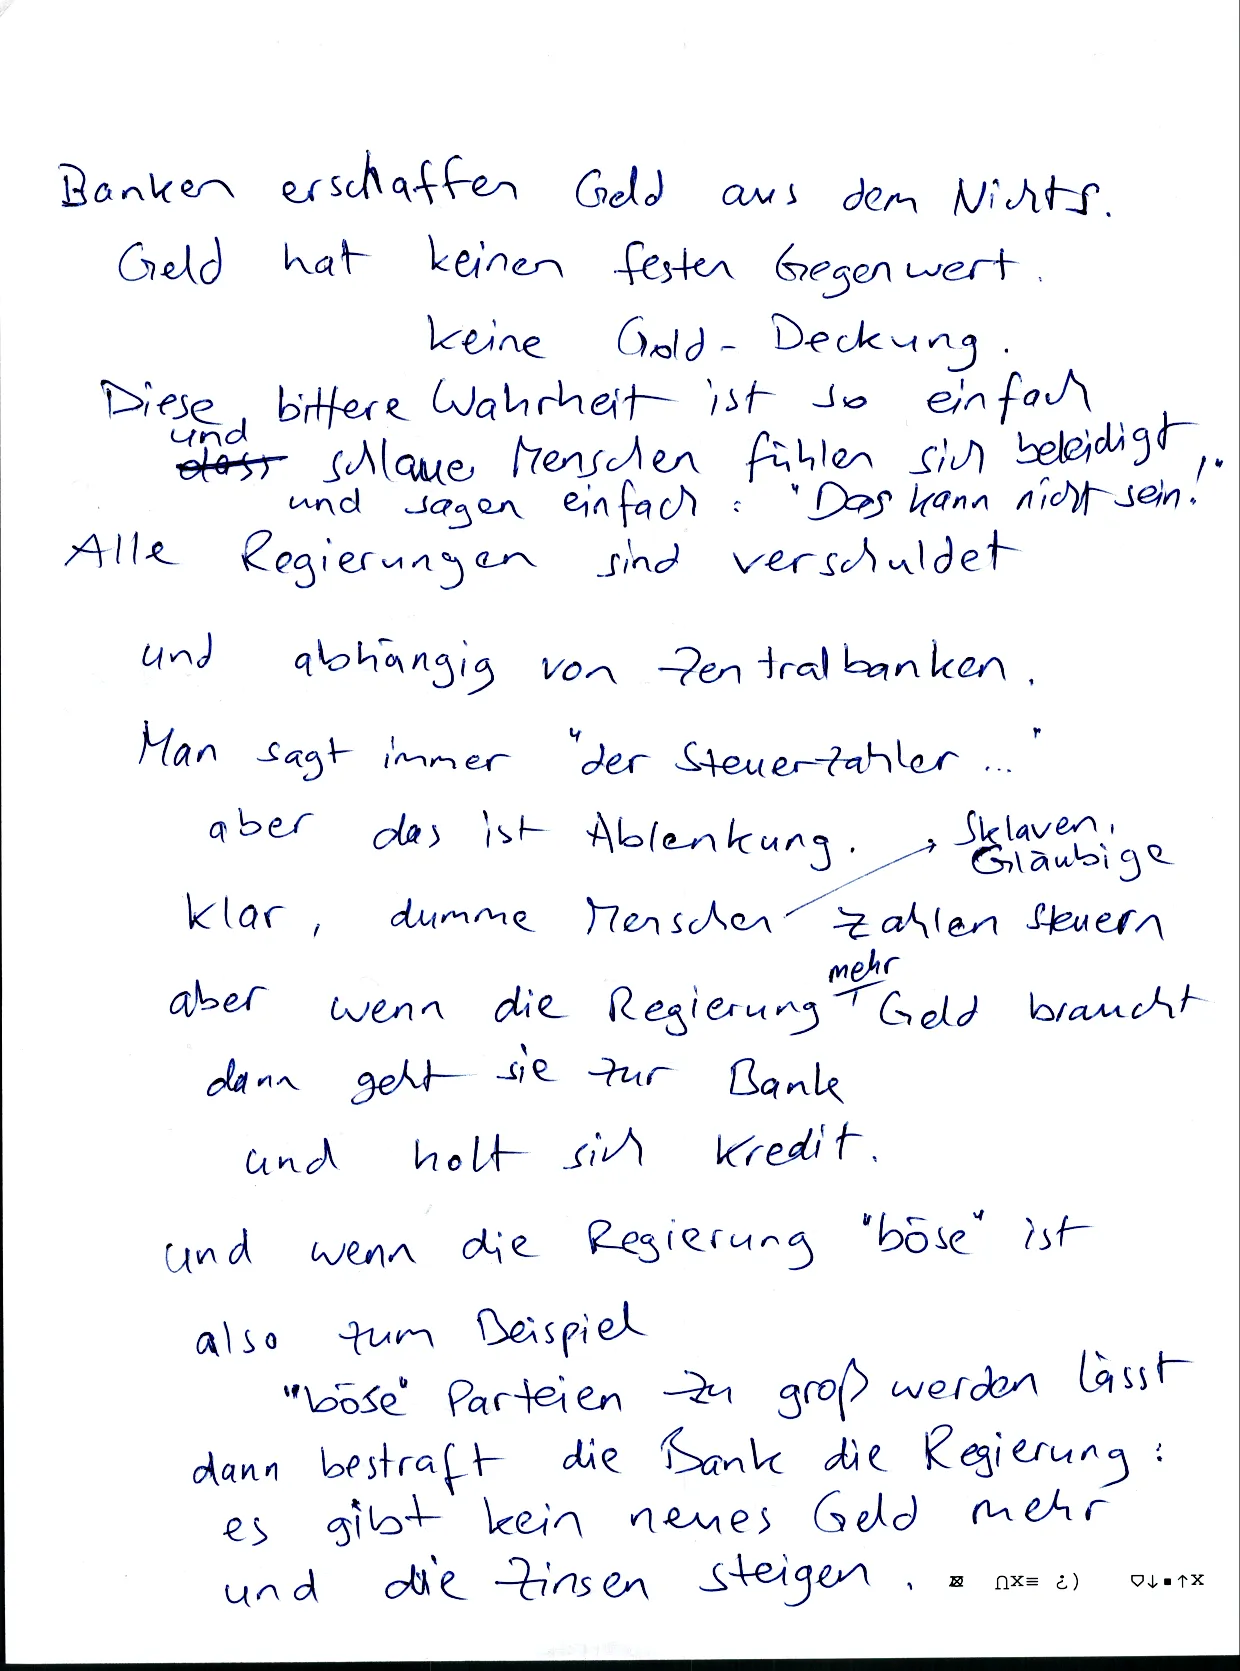 Banken erschaffen Geld aus dem Nichts.
Geld hat keinen festen Gegenwert.
keine Gold-Deckung.
Diese bittere Wahrheit ist so einfach
und
dass schlaue Menschen fühlen sich beleidigt,
und sagen einfach: "Das kann nicht sein!"
Alle Regierungen sind verschuldet
und abhängig von Zentralbanken.
Man sagt immer "der Steuerzahler ..."
aber das ist Ablenkung.
→ Sklaven,
Gläubige
klar, dumme Menschen zahlen Steuern
mehr
aber wenn die Regierung Geld braucht
dann geht sie zur Bank
und holt sich Kredit.
und wenn die Regierung "böse" ist
also zum Beispiel
"böse" Parteien zu groß werden lässt
dann bestraft die Bank die Regierung:
es gibt kein neues Geld mehr
und die Zinsen steigen. ⊠ ∩x≡ ¿) ♡↓▪↑x